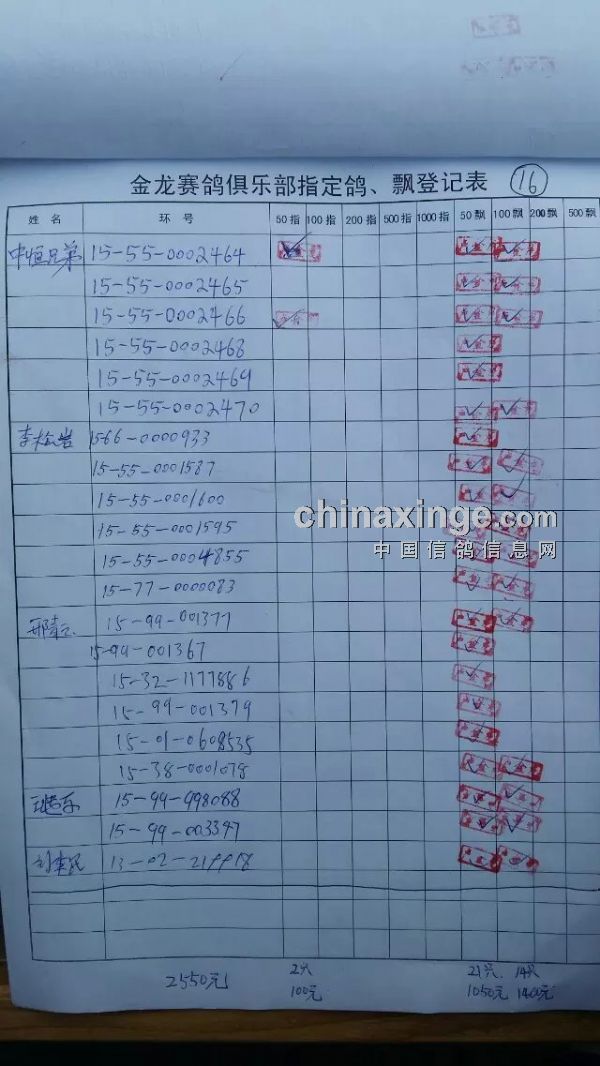 金龙赛鸽俱乐部指定鸽、飘登记表 16
姓名 环号 50指 100指 200指 500指 1000指 50飘 100飘 200飘 500飘
中恒兄弟 15-55-0002464
15-55-0002465
15-55-0002466
15-55-0002468
15-55-0002469
15-55-0002470
李松岩 1566-0000933
15-55-0001587
15-55-0001600
15-55-0001595
15-55-0004855
15-77-0000083
15-99-001377
15-99-001367
15-32-1177886
15-99-001379
15-01-0608535
15-38-0001078
15-99-998088
15-99-003397
13-02-
chinaxinge.com
中国信鸽信息网
2只 21只、14只
2550元 100元 1050元 1400元